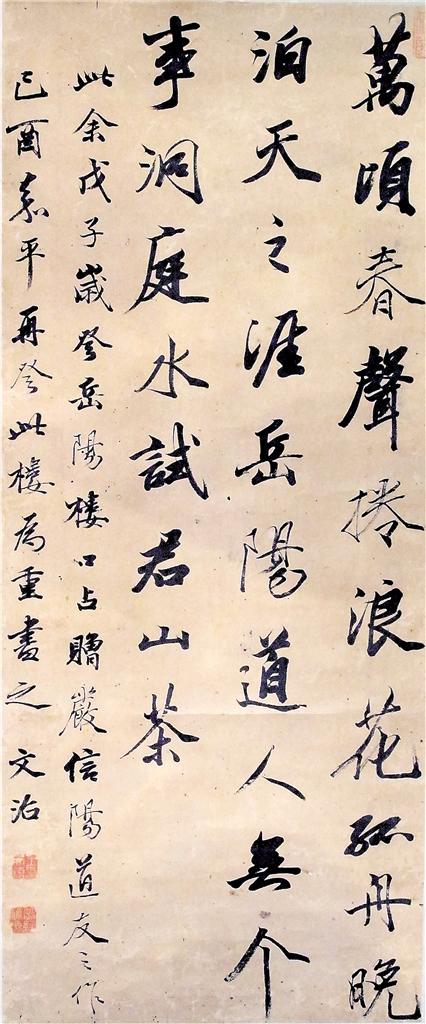 萬頃春聲捲浪花孤舟晚
泊天之涯岳陽道人無个
事洞庭水試君山茶
此余戊子歲登岳陽樓口占贈嚴信陽道友之作
己酉嘉平再登此樓為重書之 文治